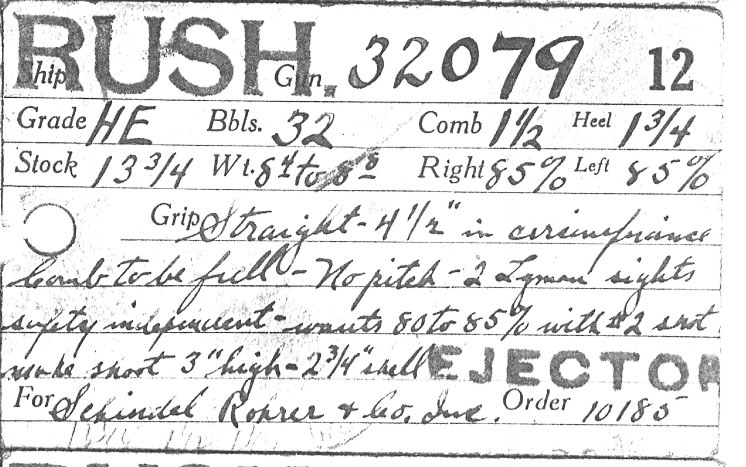 RUSH
Ship Gun. 32079 12
Grade HE Bbls. 32 Comb 1 1/2 Heel 1 3/4
Stock 13 3/4 Wt. 8 4 to 8 8 Right 85% Left 85%
Grip Straight - 4 1/2" in circumfrance
Comb to be full - No pitch - 2 Lyman sights
safety independent - wants 80 to 85% with #2 shot
make shoot 3" high - 2 3/4" shell EJECTOR
For Schindel Rohrer & Co. Inc. Order 10185